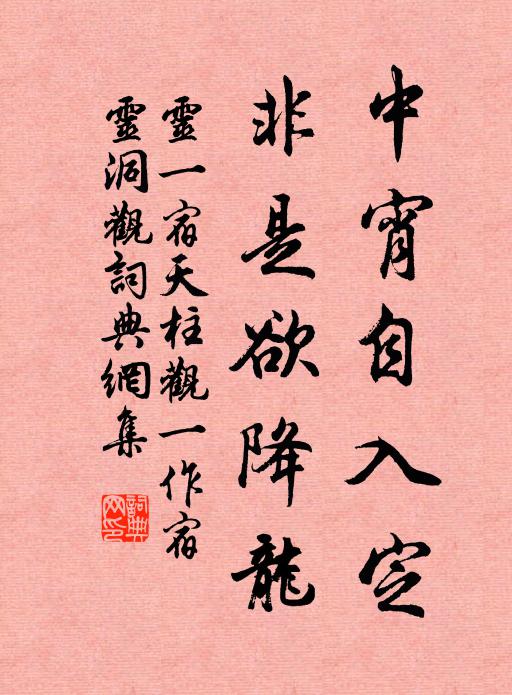 中宵自入定
非是欲降龍
靈一宿天柱觀一作宿
靈洞觀詞典網集
詞典网印